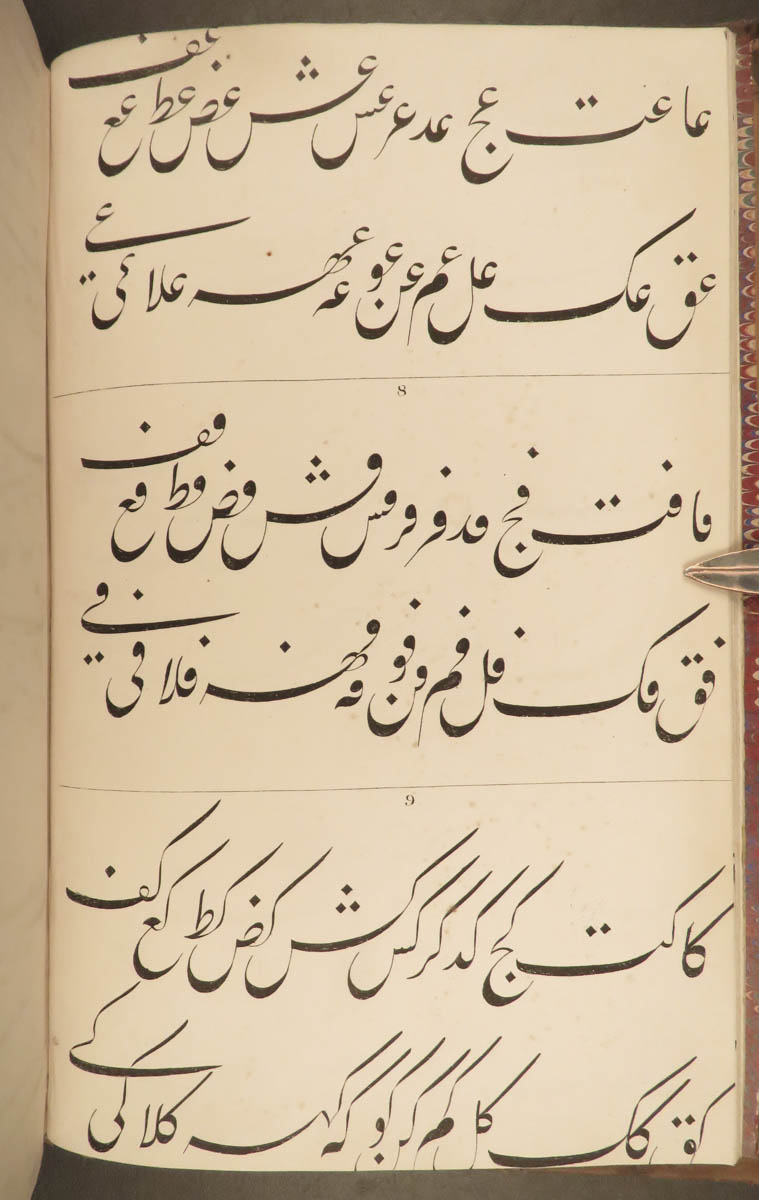 عا عت عج عد عر عس عش عض عط عع عف
عق عک عل عم عن عو عه عهه علا عی عے
8
فا فت فج فد فر فس فش فض فط فع فف
فق فک فل فم فن فو فه فهه فلا فی فے
9
کا کت کج کد کر کس کش کض کط کع کف
کق کک کل کم کن کو که کهه کلا کی کے